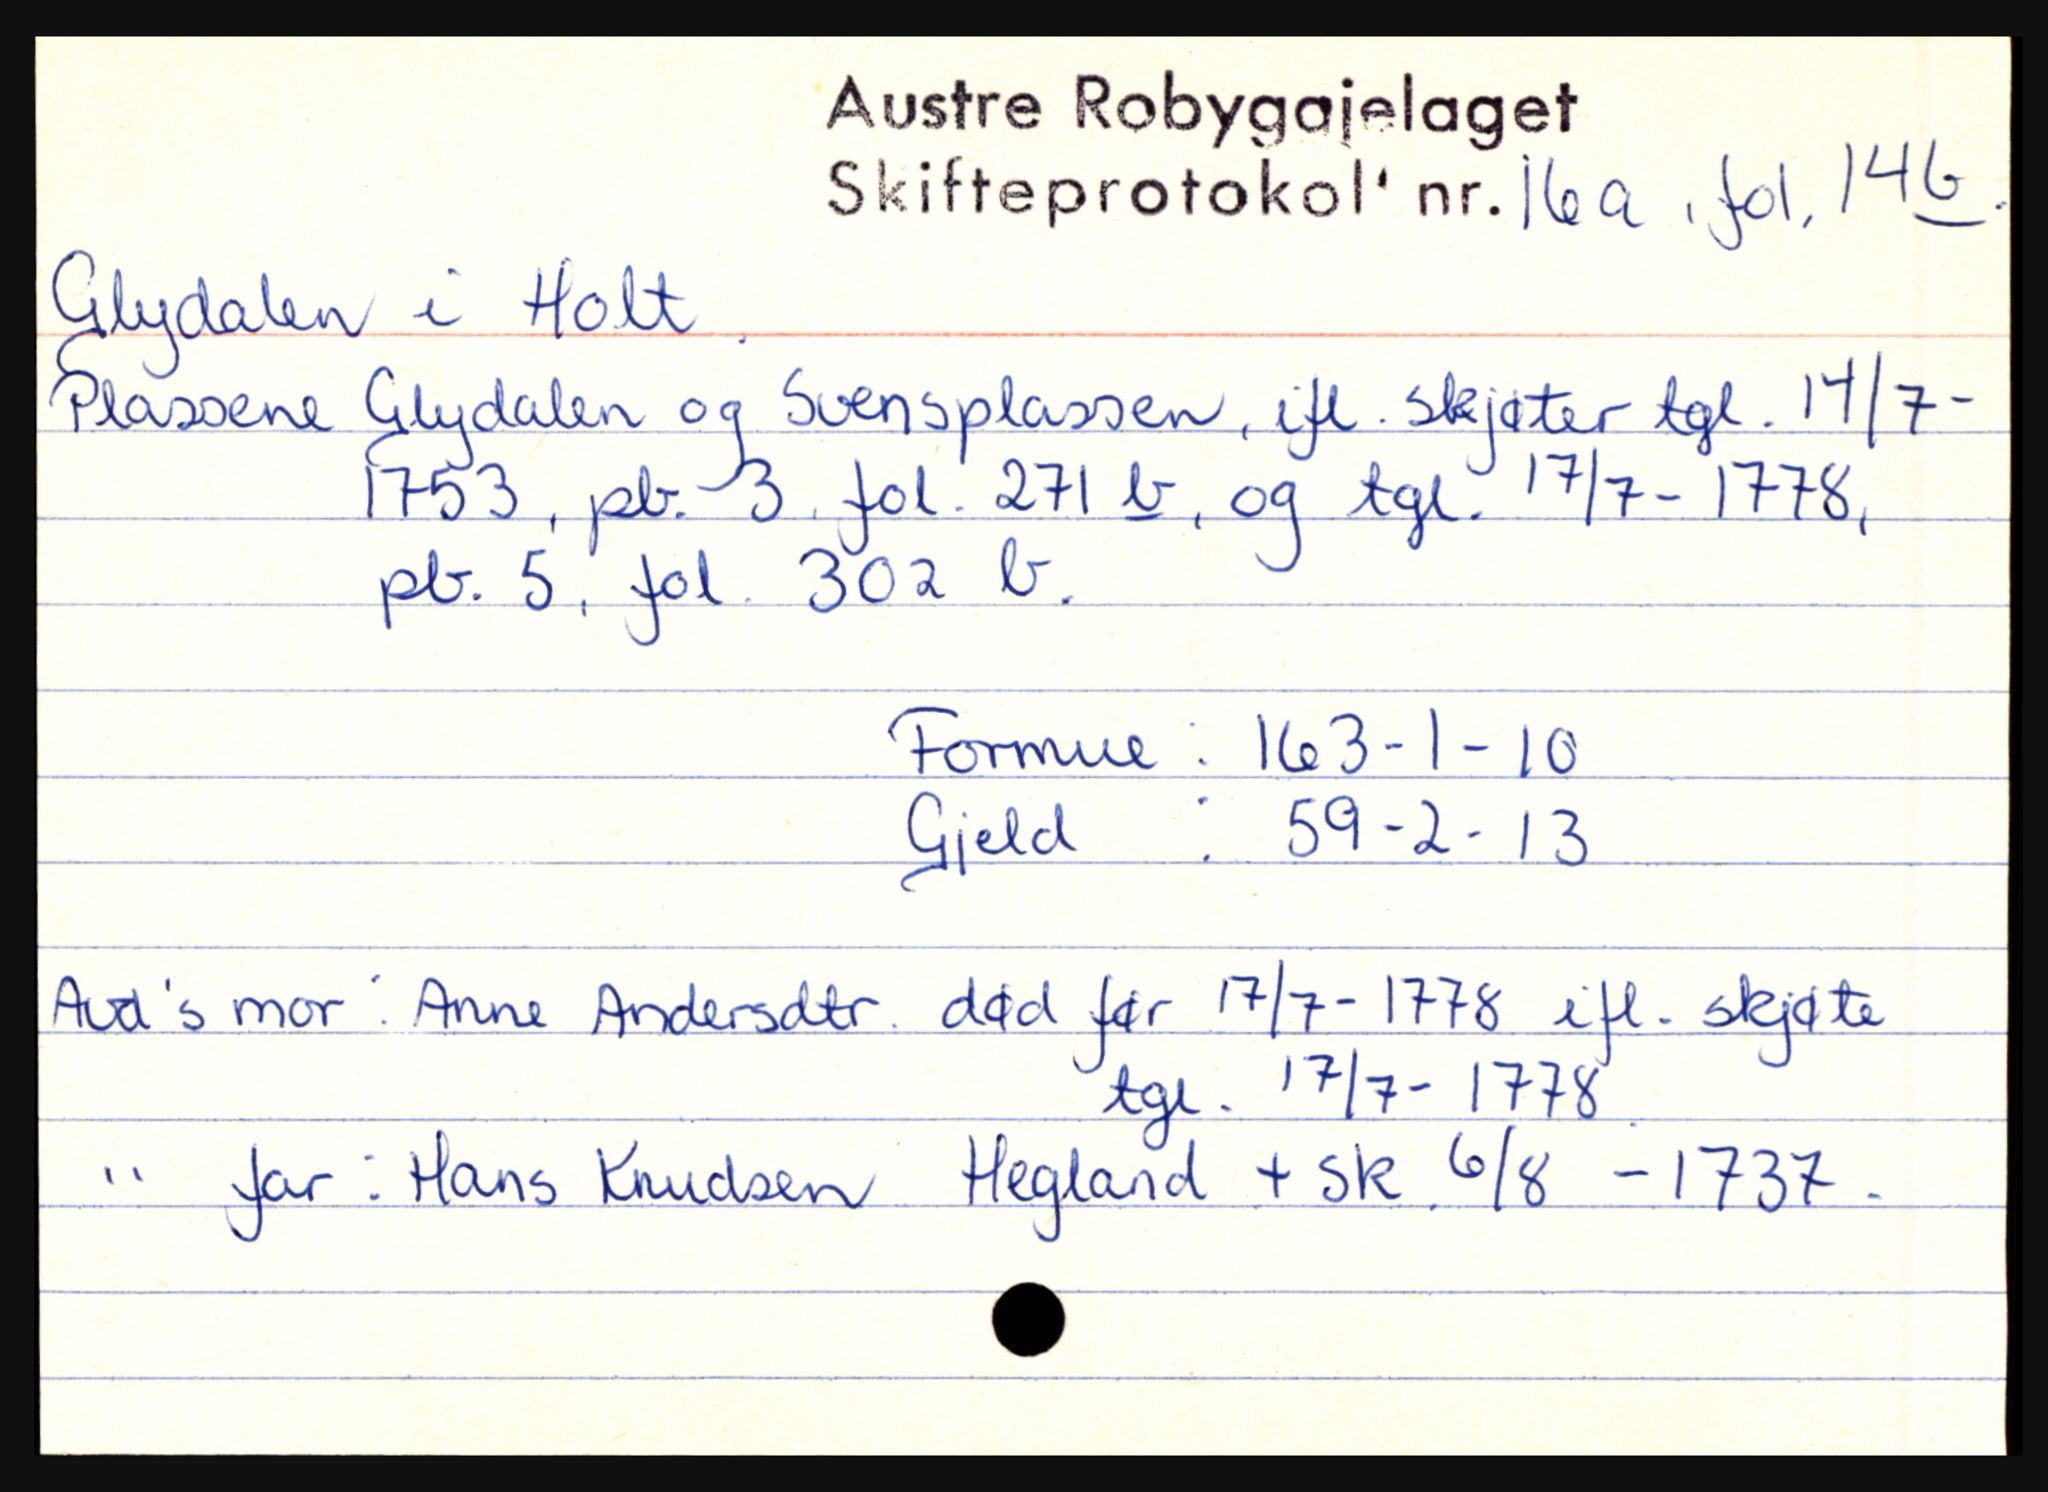 Austre Robygajelaget
Skifteprotokol' nr. 16a, fol. 14b.
Glydalen i Holt.
Plassene Glydalen og Svensplassen, ifl. skjøter tgl. 14/7-
1753, pb. 3, fol. 271 b, og tgl. 17/7-1778,
pb. 5, fol. 302 b.
Formue : 163-1-10
Gjeld : 59-2-13
Avd's mor : Anne Andersdtr. død før 17/7-1778 ifl. skjøte
tgl. 17/7-1778.
" far : Hans Knudsen Hegland + sk. 6/8 -1737.